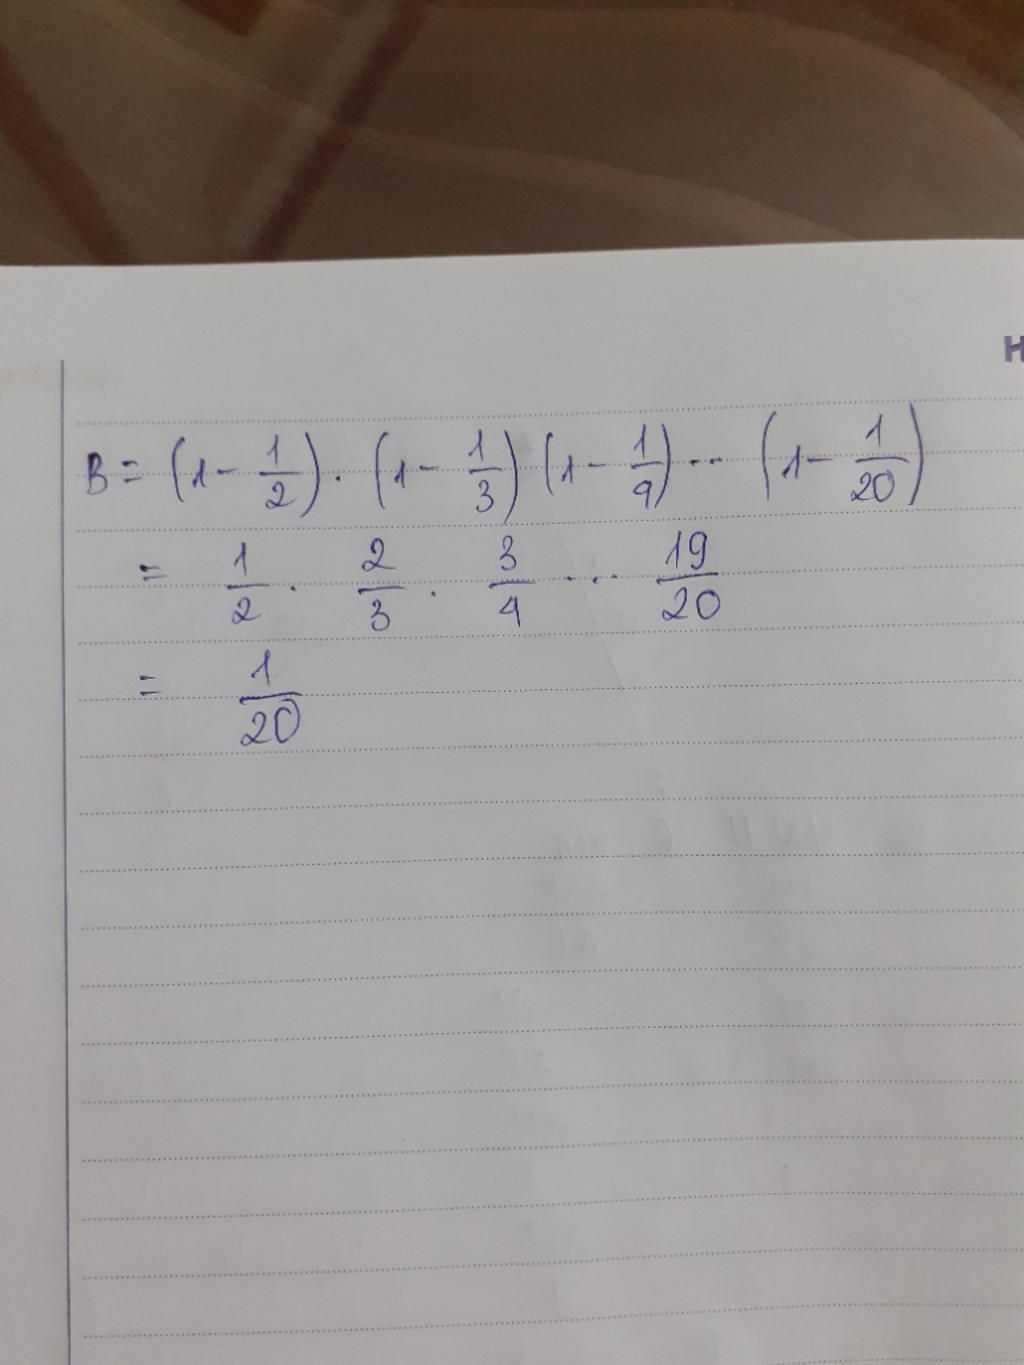 H
B = (1 - 1/2) . (1 - 1/3) (1 - 1/4) ... (1 - 1/20)
= 1/2 . 2/3 . 3/4 ... 19/20
= 1/20